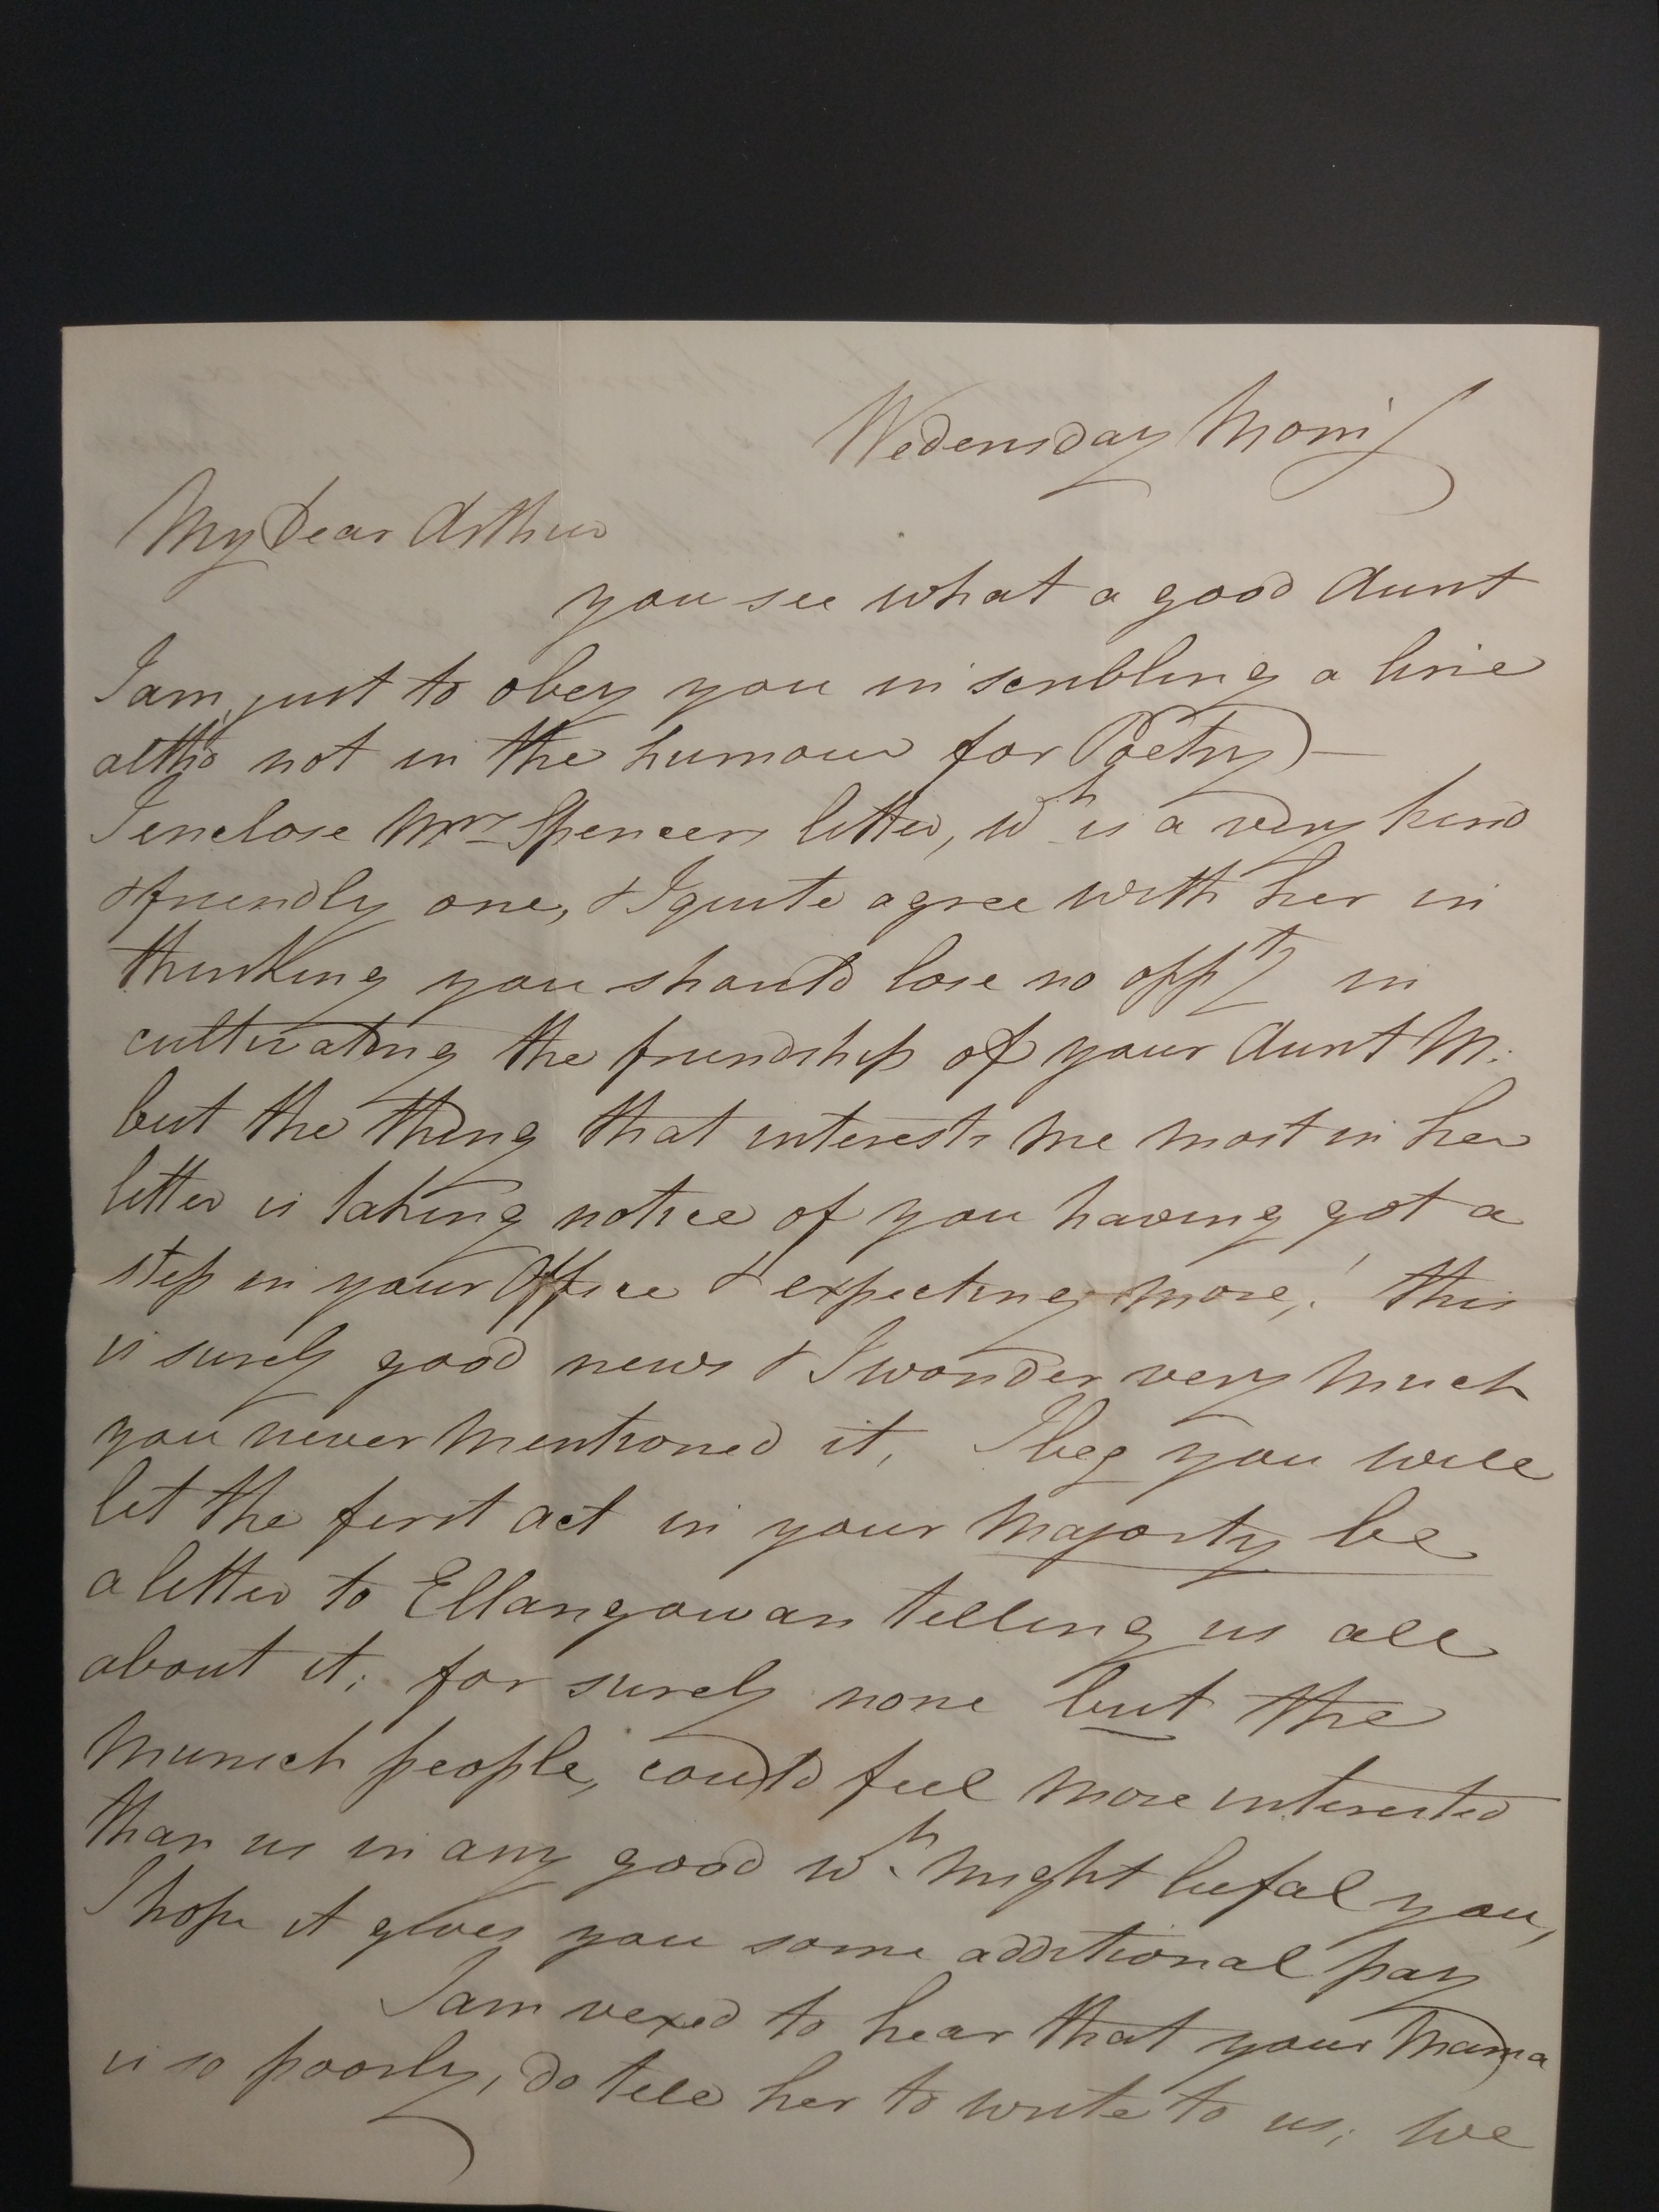 Wedensday Morng
My Dear Arthur
you see what a good Aunt
I am, just to obey you in scribbling a line
altho' not in the humour for Poetry —
I enclose Mrs Spencers letter, wh is a very kind
& friendly one, & I quite agree with her in
thinking you should lose no oppty in
cultivating the friendship of your Aunt M.
but the thing that interests me most in her
letter is taking notice of you having got a
step in your Office & expecting more,! this
is surely good news & I wonder very much
you never mentioned it, I beg you will
let the first act in your Majority be
a letter to Ellangowan telling us all
about it; for surely none but the
Munich people, could feel more interested
than us in any good wh might befal you,
I hope it gives you some additional pay
I am vexed to hear that your Mama
is so poorly, do tell her to write to us, we